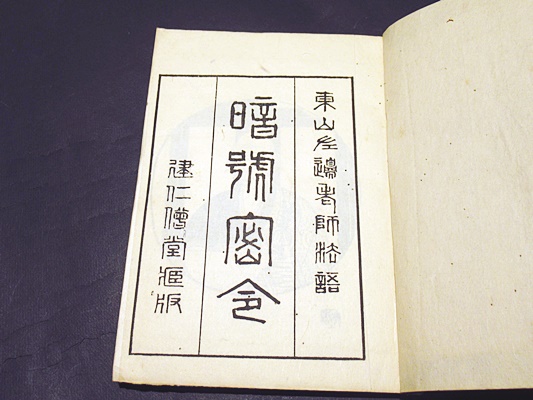 東山左邊老師法語
暗號密令
建仁僧堂藏版